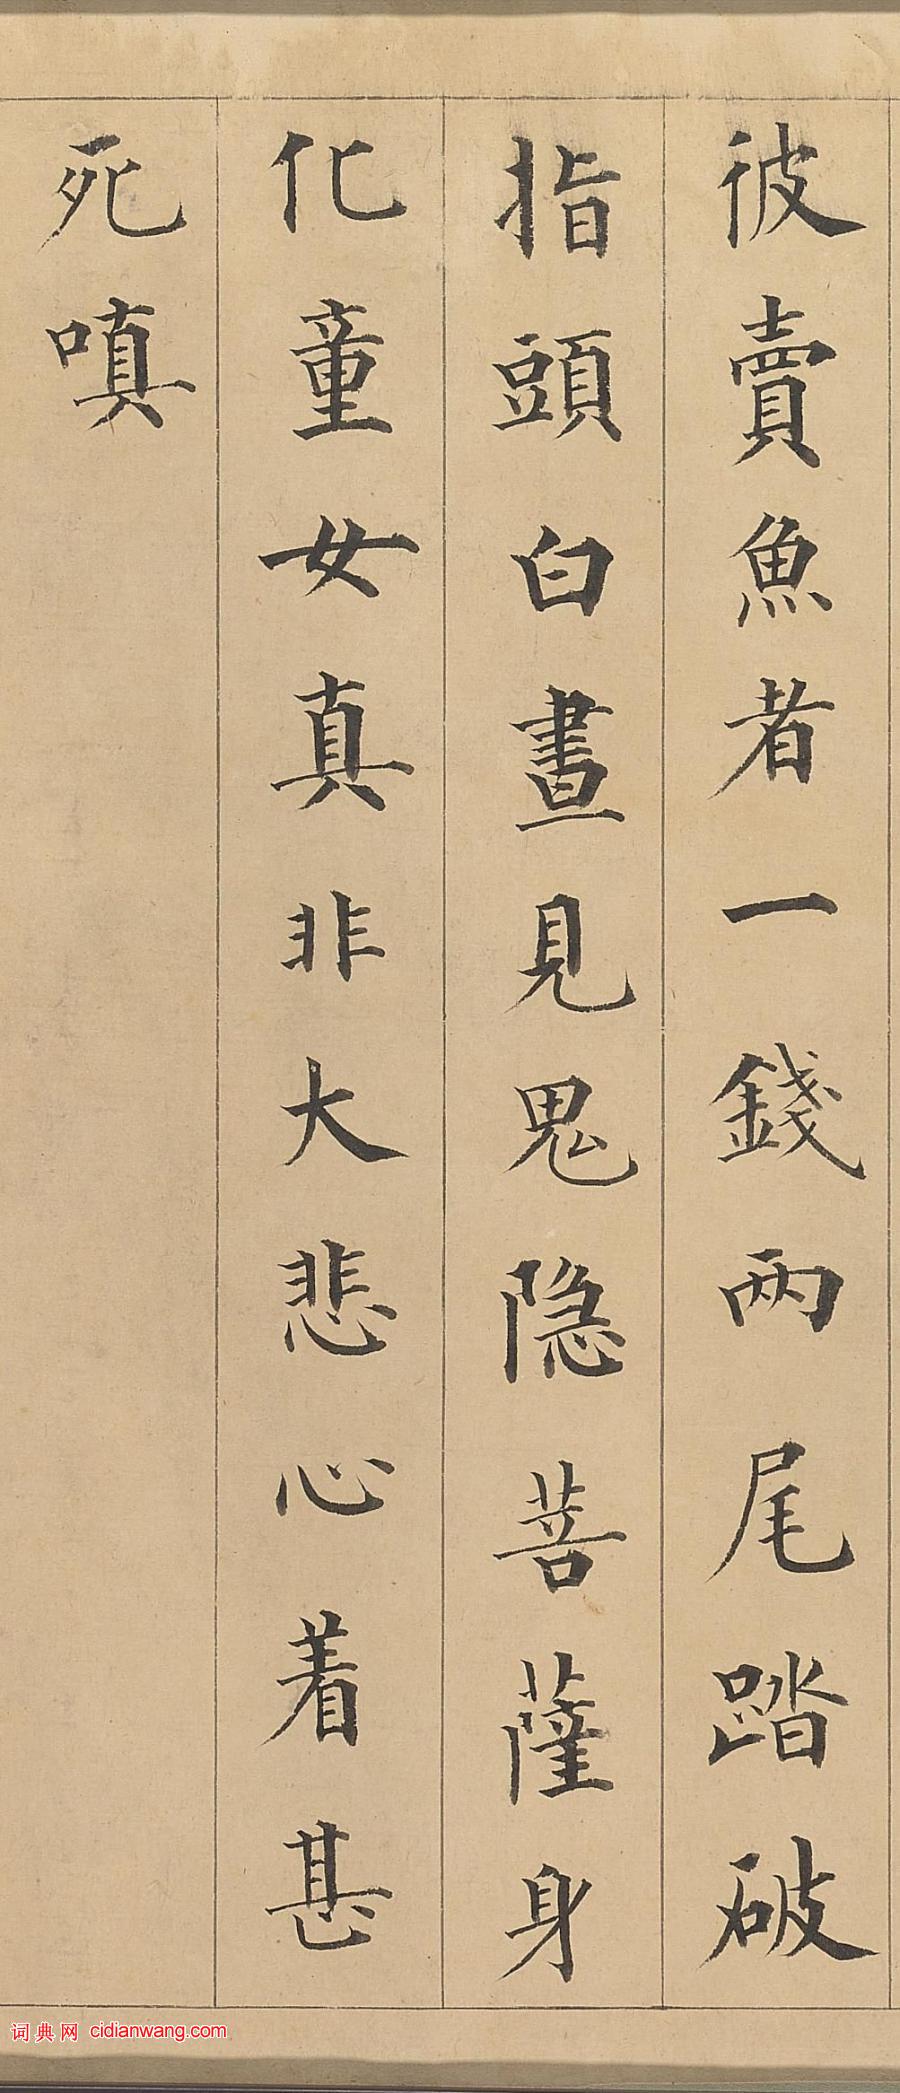 彼賣魚者一錢两尾踏破
指頭白晝見鬼隐菩薩身
化童女真非大悲心着甚
死嗔
词典网 cidianwang.com